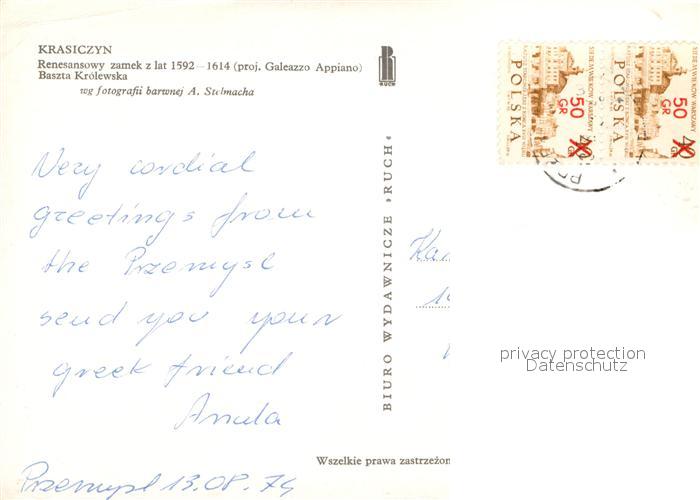 KRASICZYN
Renesansowy zamek z lat 1592—1614 (proj. Galeazzo Appiano)
Baszta Królewska
wg fotografii barwnej A. Stelmacha
RUCH
Very cordial
greetings from
the Przemysl
send you your
greek friend
Anula
Przemysl 13.08.74
BIURO WYDAWNICZE »RUCH«
Wszelkie prawa zastrzeżon
POLSKA
50
GR
40
SIEDEM WIEKÓW WARSZAWY
POLSKA
50
GR
40
SIEDEM WIEKÓW WARSZAWY
privacy protection
Datenschutz